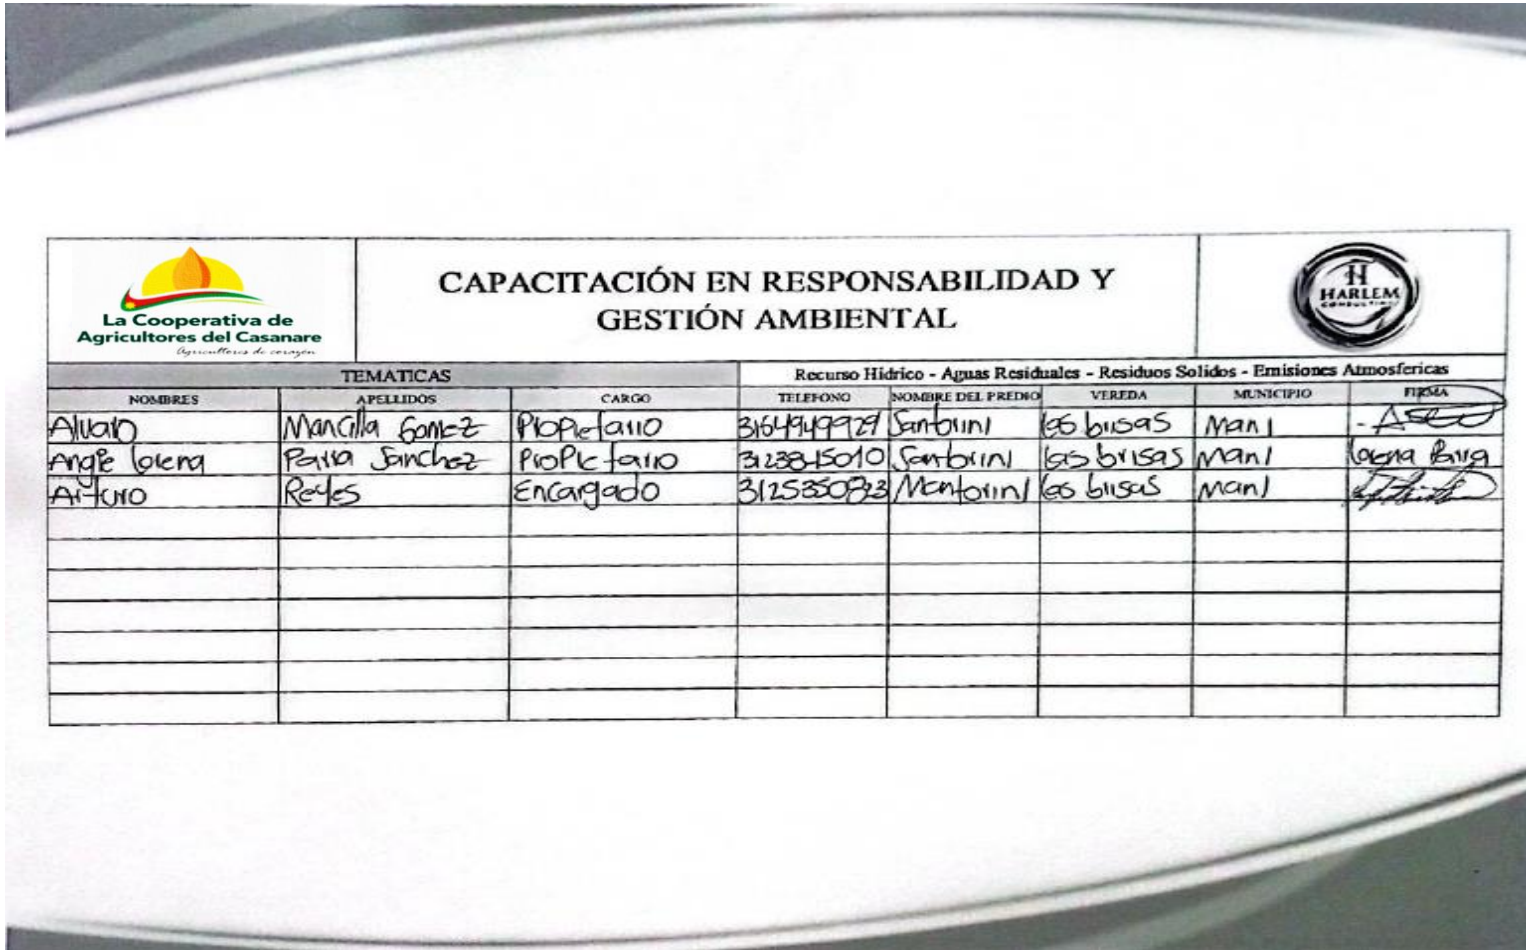 La Cooperativa de
Agricultores del Casanare
Agricultores de corazón
CAPACITACIÓN EN RESPONSABILIDAD Y
GESTIÓN AMBIENTAL
H
HARLEM
CONSULTING
TEMATICAS Recurso Hídrico - Aguas Residuales - Residuos Solidos - Emisiones Atmosfericas
NOMBRES APELLIDOS CARGO TELEFONO NOMBRE DEL PREDIO VEREDA MUNICIPIO FIRMA
Alvaro Mancilla Gomez Propietario 3164949929 Santorini las brisas Mani
Angie lorena Parra Sanchez Propietario Santorini las brisas Mani lorena Parra
Arturo Reyes Encargado Mantorini las brisas Mani